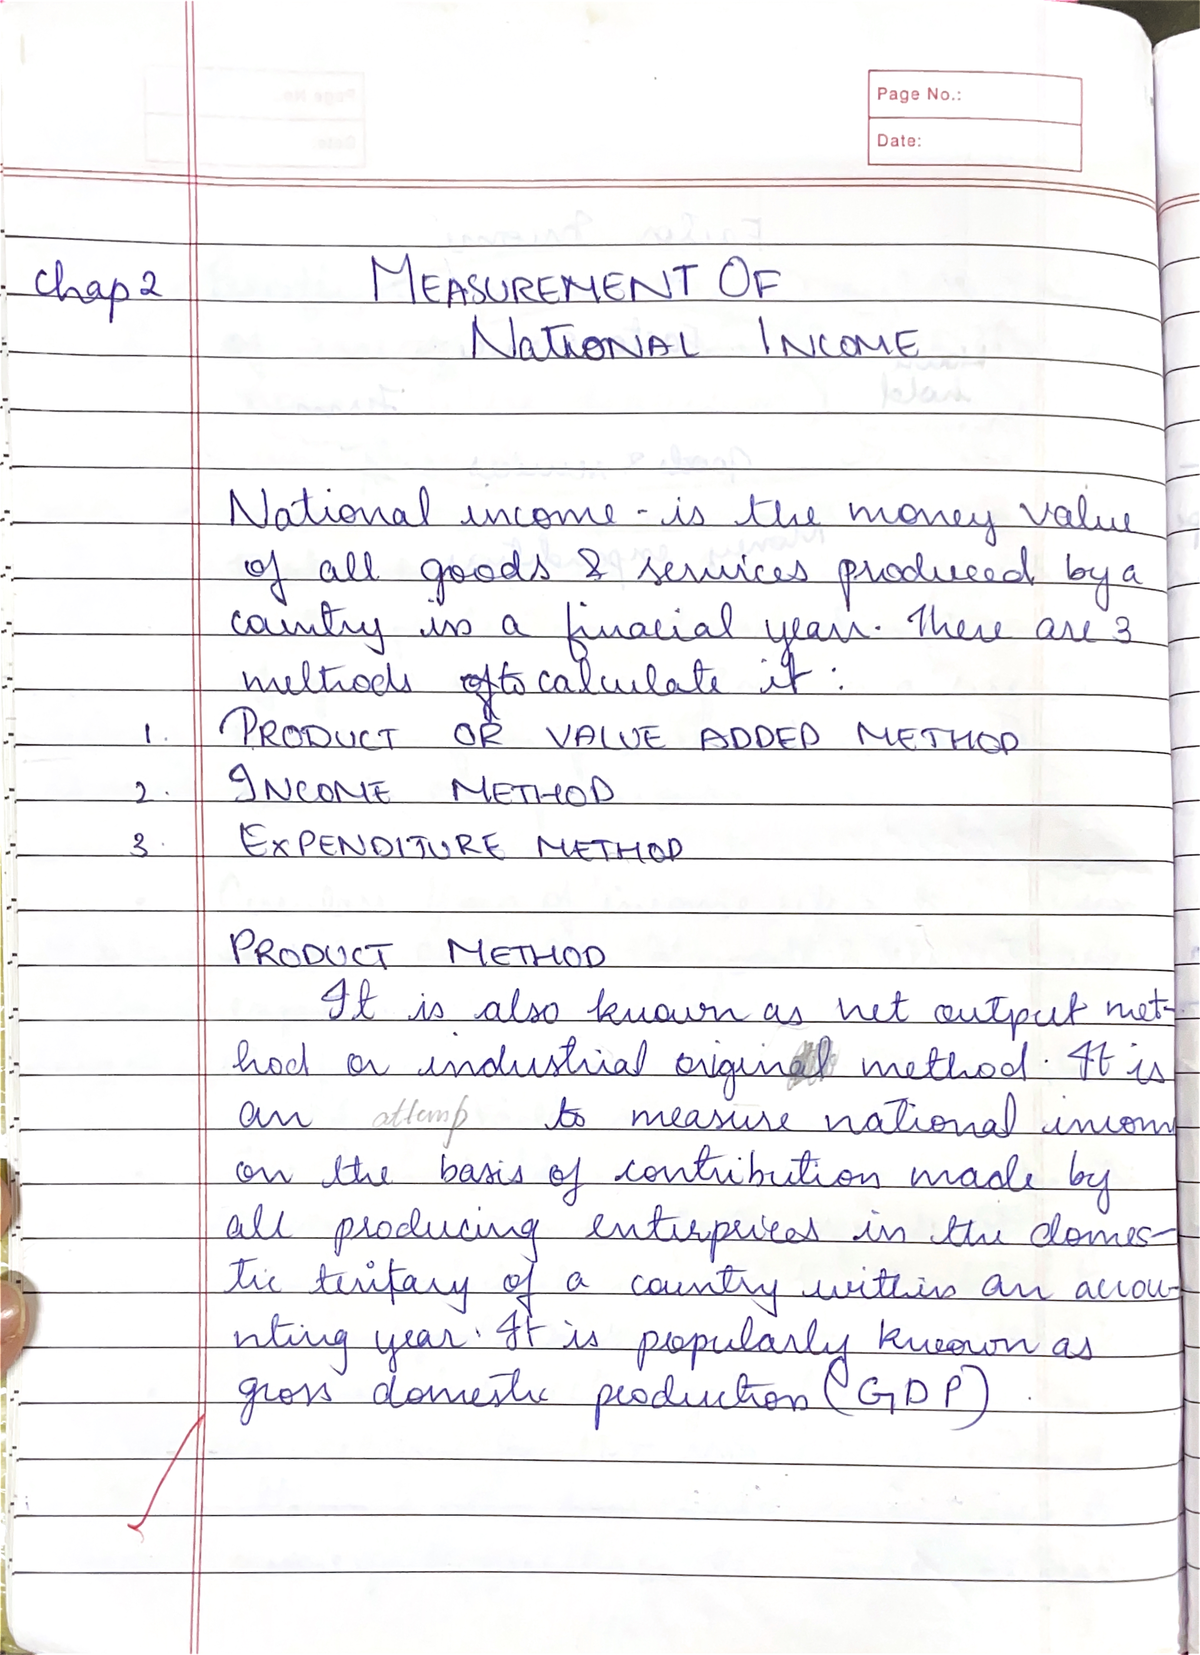 Page No.:
Date:
Chap 2 MEASUREMENT OF
NATIONAL INCOME
National income - is the money value
of all goods & services produced by a
country in a finacial year. There are 3
methods to calculate it :
1. PRODUCT OR VALUE ADDED METHOD
2. INCOME METHOD
3. EXPENDITURE METHOD
PRODUCT METHOD
It is also known as net output met-
hod or industrial origin method. It is
an attemp to measure national incom
on the basis of contribution made by
all producing enterprices in the domes-
tic teritary of a country within an accou-
nting year. It is popularly known as
gross domestic production (GDP)